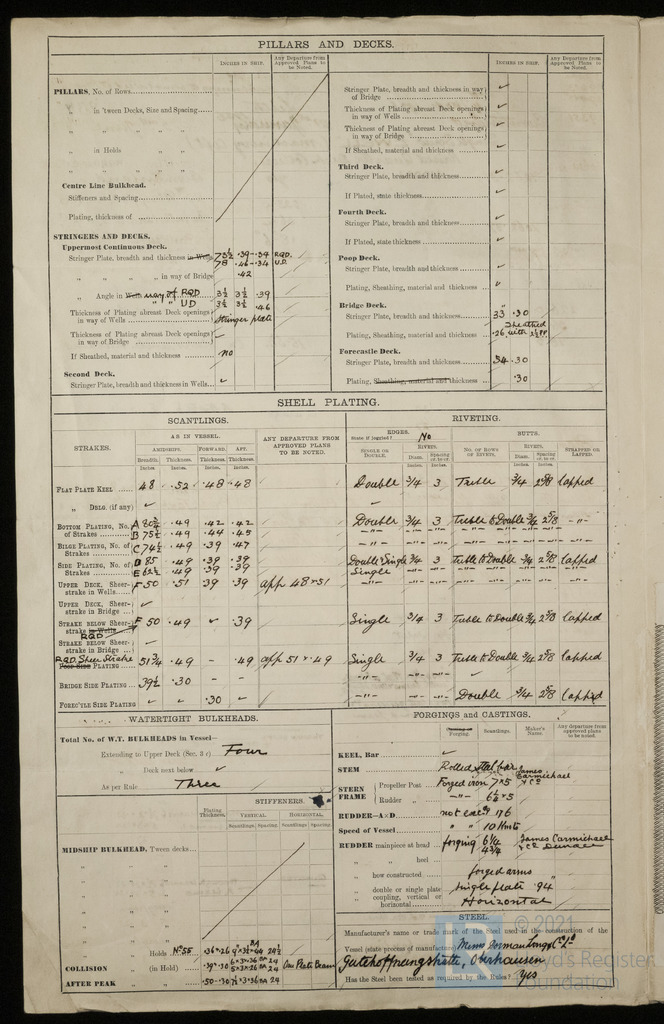 PILLARS AND DECKS.
INCHES IN SHIP.
Any Departure from Approved Plans to be Noted.
INCHES IN SHIP.
Any Departure from Approved Plans to be Noted.
PILLARS, No. of Rows
„ in 'tween Decks, Size and Spacing
„ „ „ „
„ in Holds „ „
„ „ „ „
Centre Line Bulkhead.
Stiffeners and Spacing
Plating, thickness of
STRINGERS AND DECKS.
Uppermost Continuous Deck.
Stringer Plate, breadth and thickness in Wells 73½ .39-.34 RQD.
78 .46-.34 U.D.
„ „ „ in way of Bridge .42
„ Angle in Wells way of RQD 3½ 3½ .39
„ „ UD 3½ 3½ .46
Thickness of Plating abreast Deck openings in way of Wells Stringer plate
Thickness of Plating abreast Deck openings in way of Bridge ✓
If Sheathed, material and thickness no
Second Deck.
Stringer Plate, breadth and thickness in Wells ✓
Stringer Plate, breadth and thickness in way of Bridge ✓
Thickness of Plating abreast Deck openings in way of Wells ✓
Thickness of Plating abreast Deck openings in way of Bridge ✓
If Sheathed, material and thickness ✓
Third Deck.
Stringer Plate, breadth and thickness ✓
If Plated, state thickness ✓
Fourth Deck.
Stringer Plate, breadth and thickness ✓
If Plated, state thickness ✓
Poop Deck.
Stringer Plate, breadth and thickness ✓
Plating, Sheathing, material and thickness
Bridge Deck.
Stringer Plate, breadth and thickness 33 .30
Plating, Sheathing, material and thickness .26 Sheathed with 2½ PP.
Forecastle Deck.
Stringer Plate, breadth and thickness 34 .30
Plating, Sheathing, material and thickness .30
SHELL PLATING.
SCANTLINGS.
RIVETING.
STRAKES.
AS IN VESSEL.
AMIDSHIPS. FORWARD. AFT.
Breadth. Thickness. Thickness. Thickness.
Inches. Inches. Inches. Inches.
ANY DEPARTURE FROM APPROVED PLANS TO BE NOTED.
EDGES.
State if joggled? No
SINGLE OR DOUBLE.
RIVERS.
Diam. Spacing cr. to cr.
Inches Inches
BUTTS.
NO. OF ROWS OF RIVETS.
RIVETS.
Diam. Spacing cr. to cr.
Inches Inches
STRAPPED OR LAPPED.
FLAT PLATE KEEL 48 .52 .48 .48 Double ¾ 3 Treble ¾ 2⅝ lapped
„ DBLG. (if any) ✓
BOTTOM PLATING, No. of Strakes A 80½ .49 .42 .42 Double ¾ 3 Treble to Double ¾ 2⅝ -„-
B 75½ .49 .44 .45
BILGE PLATING, No. of Strakes C 74½ .49 .39 .47
SIDE PLATING, No. of Strakes D 85 .49 .39 .39 Double Single ¾ 3 Treble to Double ¾ 2⅝ lapped
E 62½ .49 .39 .39 Single
UPPER DECK, Sheer-strake in Wells F 50 .51 .39 .39 app 48 × 51
UPPER DECK, Sheer-strake in Bridge ✓
STRAKE BELOW Sheer-strake in Wells RQD F 50 .49 ✓ .39 Single ¾ 3 Treble to Double ¾ 2⅝ lapped
STRAKE BELOW Sheer-strake in Bridge ✓
RQD. Sheer Strake 51¾ .49 - .49 app 51 × .49 Single ¾ 3 Treble to Double ¾ 2⅝ lapped
POOP SIDE PLATING
BRIDGE SIDE PLATING 39½ .30 - -
FORECASTLE SIDE PLATING .30 ✓ Double ¾ 2⅝ lapped
WATERTIGHT BULKHEADS.
Total No. of W.T. BULKHEADS in Vessel—
Extending to Upper Deck (Sec. 3 c) Four
„ Deck next below ✓
As per Rule Three
STIFFENERS.
Plating Thickness.
VERTICAL HORIZONTAL
Scantlings. Spacing. Scantlings. Spacing.
MIDSHIP BULKHEAD, Tween decks
„ „
„ „
„ „
„ „
„ Holds No 55
COLLISION „ (in Hold) One Plate Beam
AFTER PEAK „ „
FORGINGS and CASTINGS.
Forging. Scantlings. Maker's Name. Any departure from approved plans to be noted.
KEEL, Bar ✓
STEM Rolled steel bar
STERN FRAME Propeller Post Forged iron 7 × 5 James Carmichael & Co
Rudder „ -„- 6½ × 5
RUDDER—A×D 176
Speed of Vessel „ „ 10 Knots
RUDDER mainpiece at head forging 6¼ James Carmichael & Co Dundee
„ „ heel 4¾
„ how constructed forged arms
„ double or single plate single plate .94
„ coupling, vertical or horizontal Horizontal
STEEL.
Manufacturer's name or trade mark of the Steel used in the construction of the
Vessel (state process of manufacture) Messrs Dorman Long & Co Ltd
Gutehoffnungshütte, Oberhausen
Has the Steel been tested as required by the Rules? yes
© 2021
Lloyd's Register
Foundation